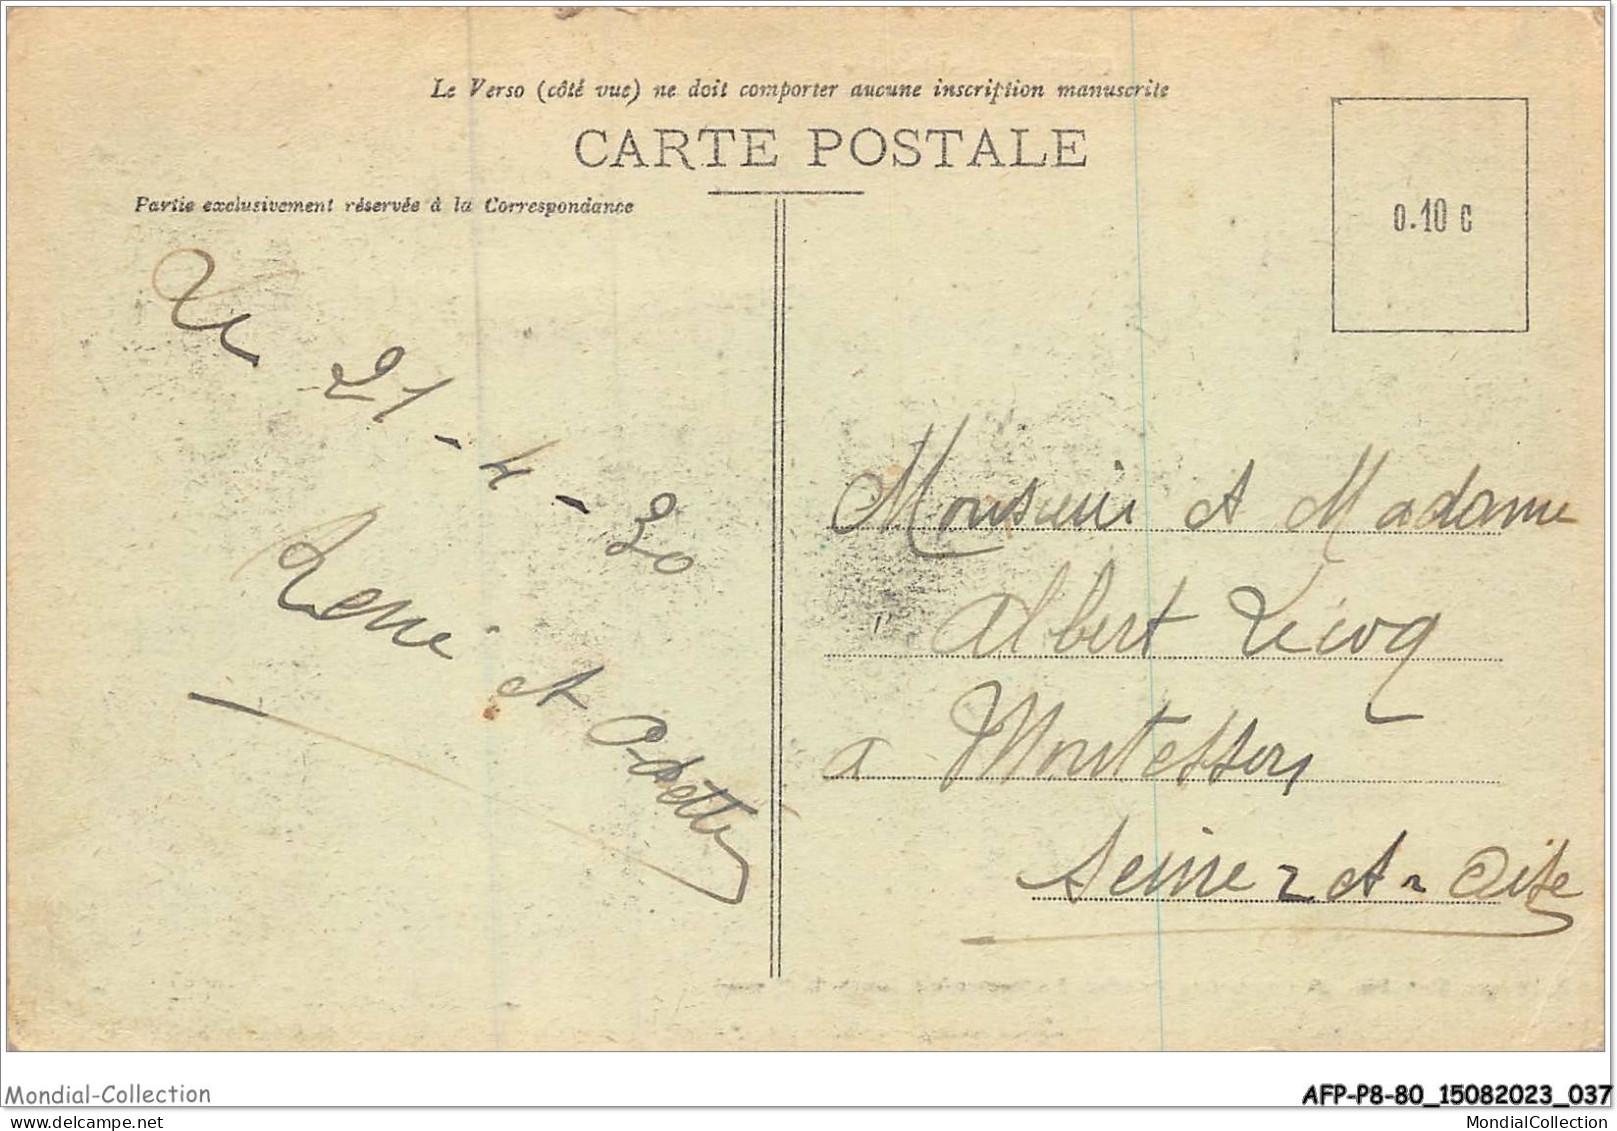 Le Verso (côté vue) ne doit comporter aucune inscription manuscrite
CARTE POSTALE
Partie exclusivement réservée à la Correspondance
0.10 C
Le 21-4-30
René et Odette
Monsieur et Madame
Albert Lecoq
a Montesson
Seine-et-Oise
Mondial-Collection
AFP-P8-80_15082023_037
delcampe.net
MondialCollection